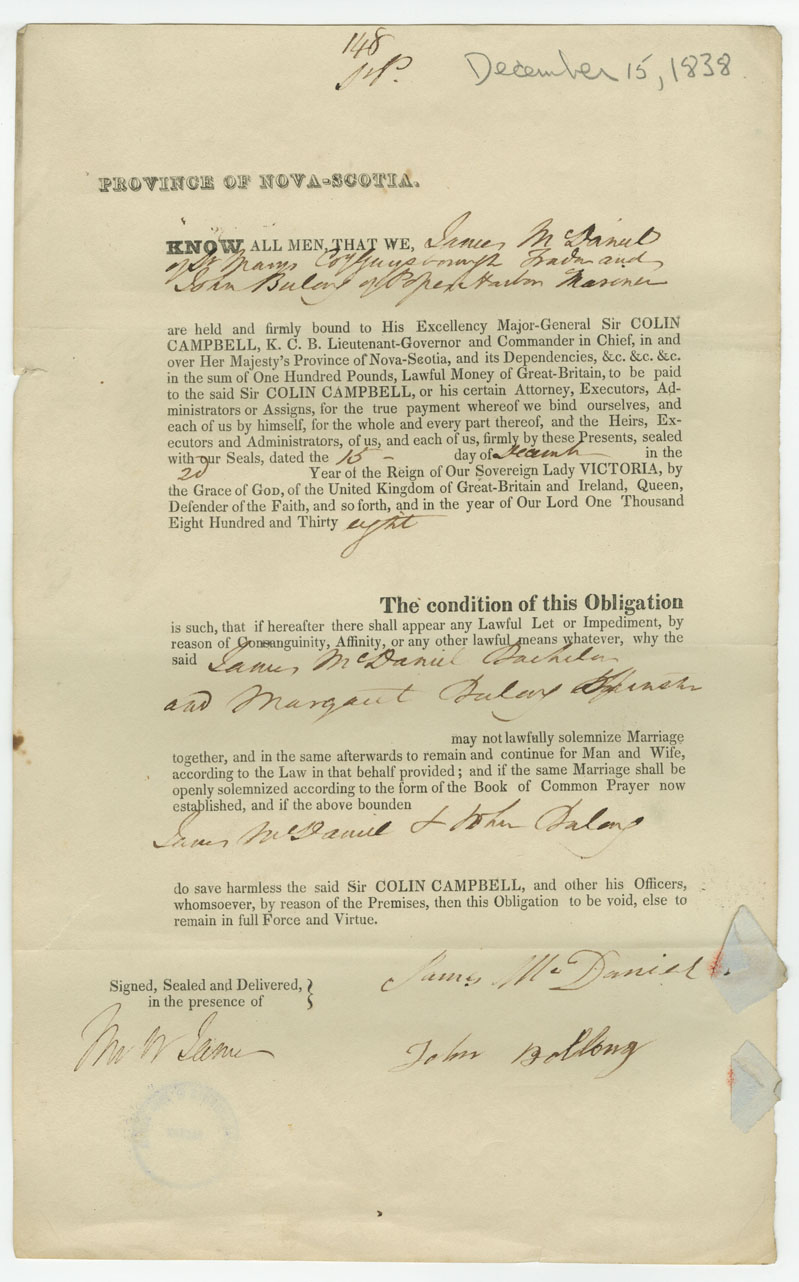 148
December 15, 1838
PROVINCE OF NOVA-SCOTIA.
KNOW ALL MEN, THAT WE, James McDaniel
of St Marys Coy Guysborough Trader and
John Bulong of Popes Harbor Mariner
are held and firmly bound to His Excellency Major-General Sir COLIN
CAMPBELL, K. C. B. Lieutenant-Governor and Commander in Chief, in and
over Her Majesty's Province of Nova-Scotia, and its Dependencies, &c. &c. &c.
in the sum of One Hundred Pounds, Lawful Money of Great-Britain, to be paid
to the said Sir COLIN CAMPBELL, or his certain Attorney, Executors, Ad-
ministrators or Assigns, for the true payment whereof we bind ourselves, and
each of us by himself, for the whole and every part thereof, and the Heirs, Ex-
ecutors and Administrators, of us, and each of us, firmly by these Presents, sealed
with our Seals, dated the 15 - day of December in the
2d Year of the Reign of Our Sovereign Lady VICTORIA, by
the Grace of GOD, of the United Kingdom of Great-Britain and Ireland, Queen,
Defender of the Faith, and so forth, and in the year of Our Lord One Thousand
Eight Hundred and Thirty eight
The condition of this Obligation
is such, that if hereafter there shall appear any Lawful Let or Impediment, by
reason of Consanguinity, Affinity, or any other lawful means whatever, why the
said James McDaniel Bachelor
and Margaret Bulong Spinster
may not lawfully solemnize Marriage
together, and in the same afterwards to remain and continue for Man and Wife,
according to the Law in that behalf provided; and if the same Marriage shall be
openly solemnized according to the form of the Book of Common Prayer now
established, and if the above bounden
James McDaniel & John Bulong
do save harmless the said Sir COLIN CAMPBELL, and other his Officers,
whomsoever, by reason of the Premises, then this Obligation to be void, else to
remain in full Force and Virtue.
Signed, Sealed and Delivered,
in the presence of
James McDaniel
James
John Bollong